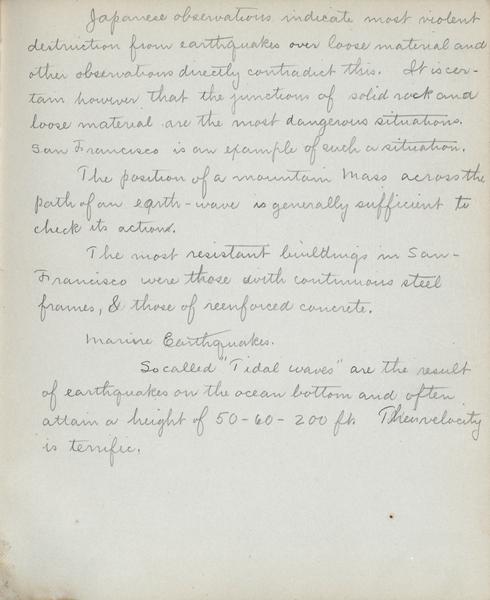 Japanese observations indicate most violent
destruction from earthquakes over loose material and
other observations directly contradict this. It is cer-
tain however that the junctions of solid rock and
loose material are the most dangerous situations.
San Francisco is an example of such a situation.
The position of a mountain mass across the
path of an earth-wave is generally sufficient to
check its actions.
The most resistant buildings in San-
Francisco were those with continuous steel
frames, & those of reenforced concrete.
Marine Earthquakes.
So called "Tidal waves" are the result
of earthquakes on the ocean bottom and often
attain a height of 50-60-200 ft. Their velocity
is terrific.